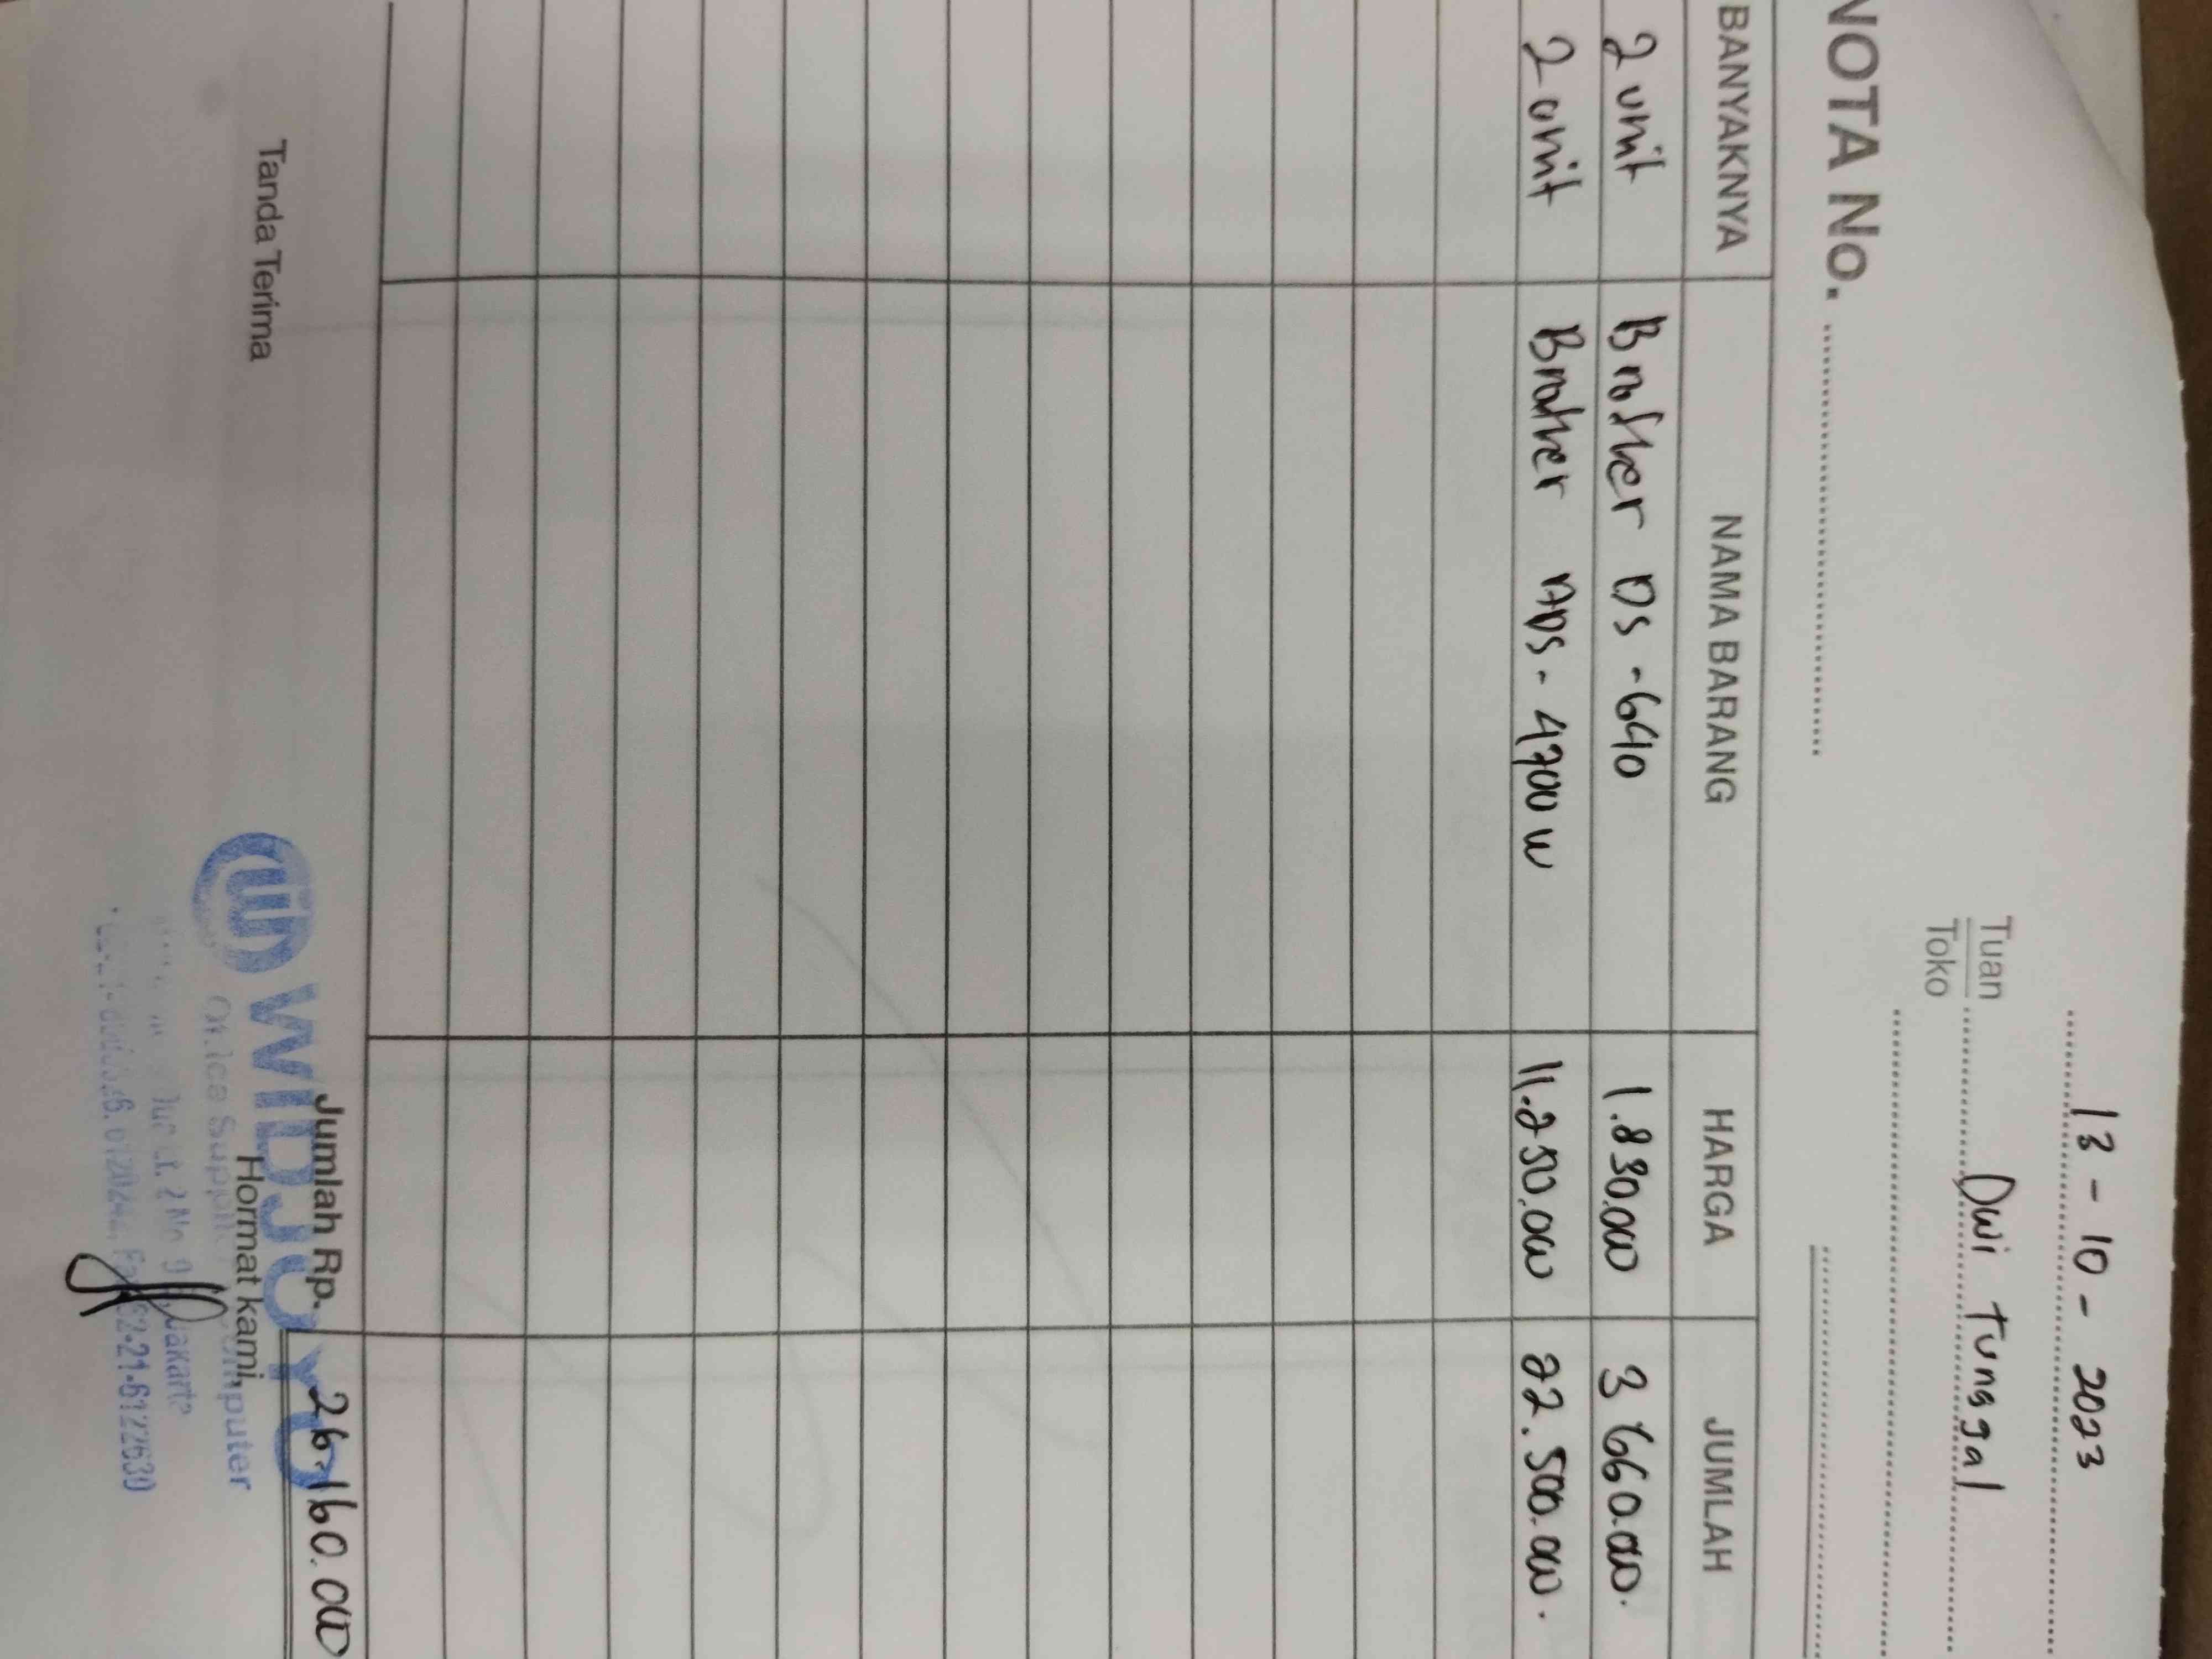 13 - 10 - 2023
Tuan Dwi Tunggal
Toko
NOTA No.
BANYAKNYA NAMA BARANG HARGA JUMLAH
2 unit Brother DS -640 1.830.000 3 660.000.
2 unit Brother ADS - 4700 W 11.250.000 22.500.000.
Jumlah Rp. 26.160.000
Tanda Terima Hormat kami,
WIDJOYO
Computer
Lt. 2 No
Jakarta
62-21-6122630